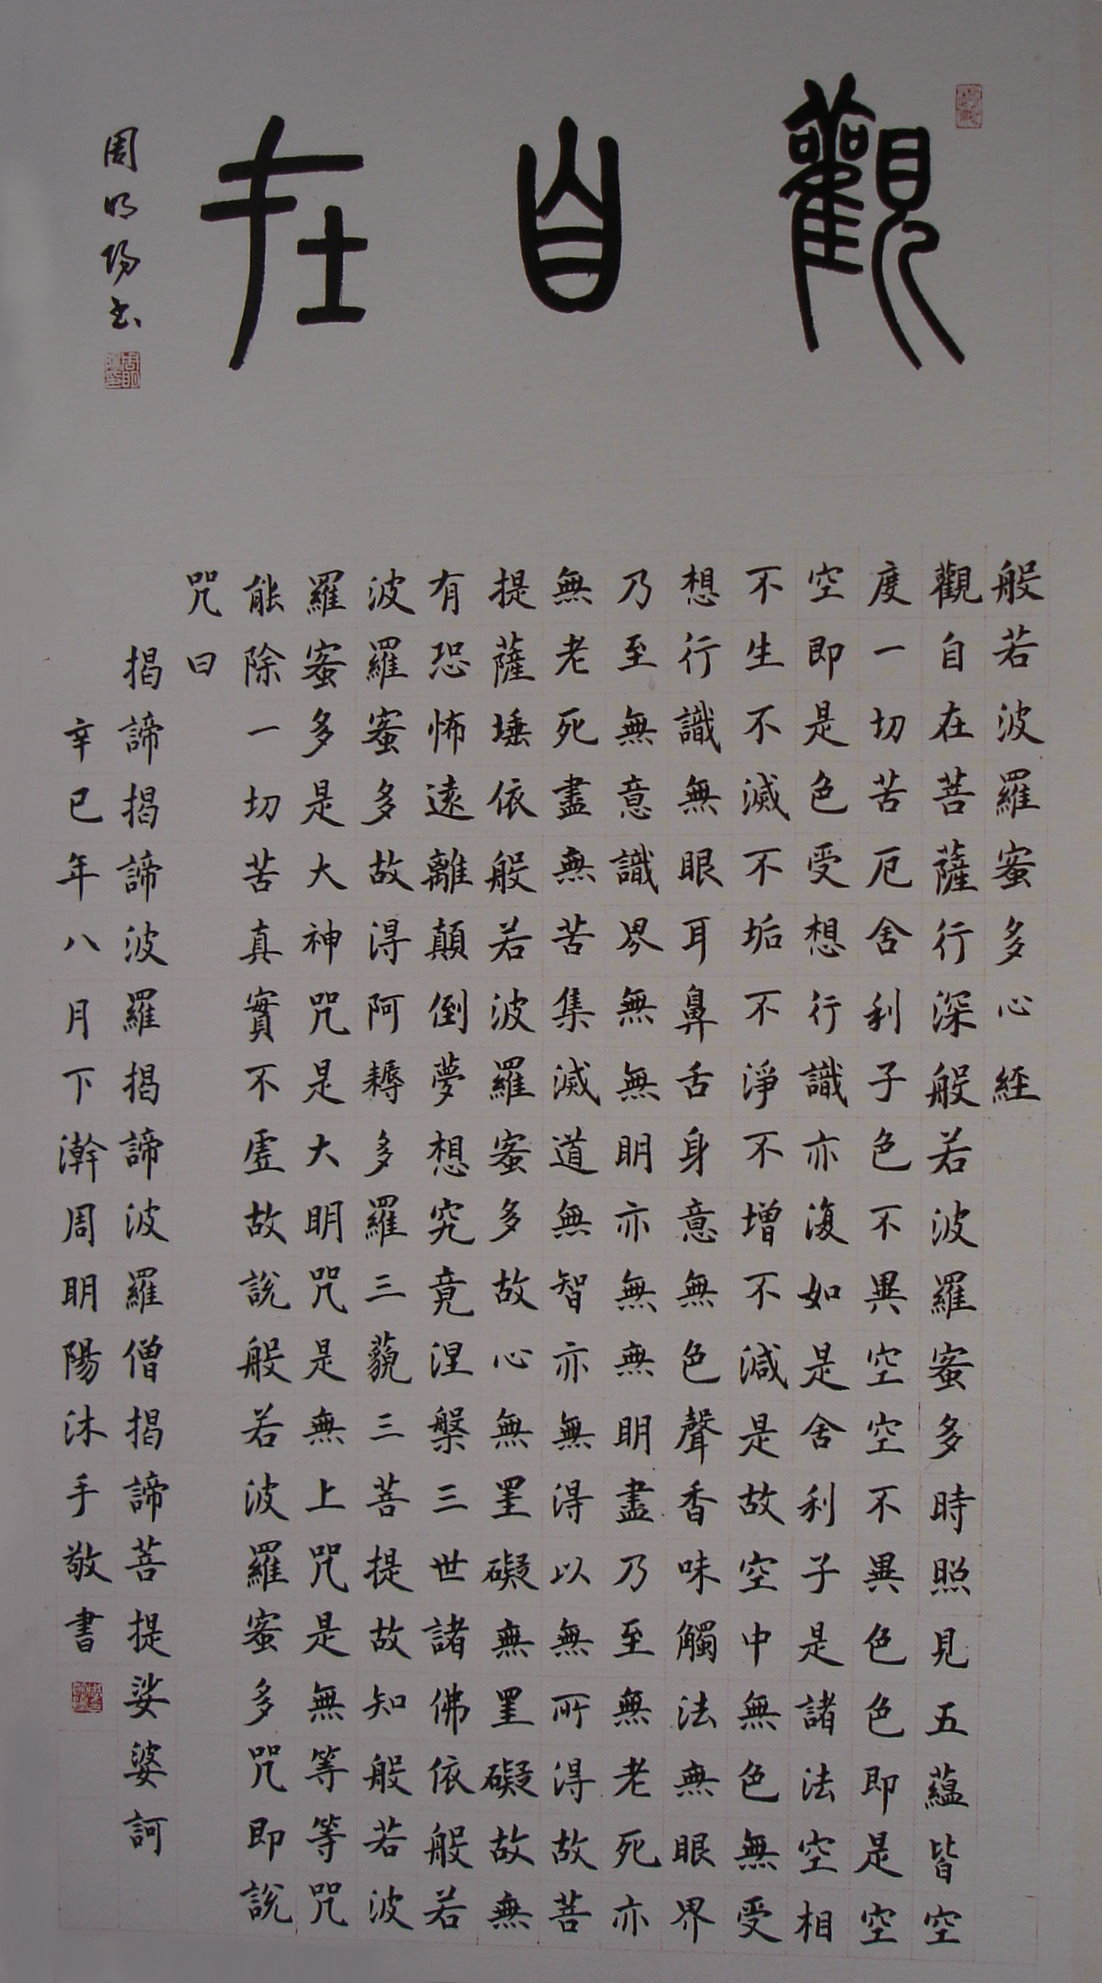 觀自在
周明陽書
般若波羅蜜多心經
觀自在菩薩行深般若波羅蜜多時照見五蘊皆空
度一切苦厄舍利子色不異空空不異色色即是空
空即是色受想行識亦復如是舍利子是諸法空相
不生不滅不垢不淨不增不減是故空中無色無受
想行識無眼耳鼻舌身意無色聲香味觸法無眼界
乃至無意識界無無明亦無無明盡乃至無老死亦
無老死盡無苦集滅道無智亦無得以無所得故菩
提薩埵依般若波羅蜜多故心無罣礙無罣礙故無
有恐怖遠離顛倒夢想究竟涅槃三世諸佛依般若
波羅蜜多故得阿耨多羅三藐三菩提故知般若波
羅蜜多是大神咒是大明咒是無上咒是無等等咒
能除一切苦真實不虛故說般若波羅蜜多咒即說
咒曰
揭諦揭諦波羅揭諦波羅僧揭諦菩提娑婆訶
辛巳年八月下澣周明陽沐手敬書